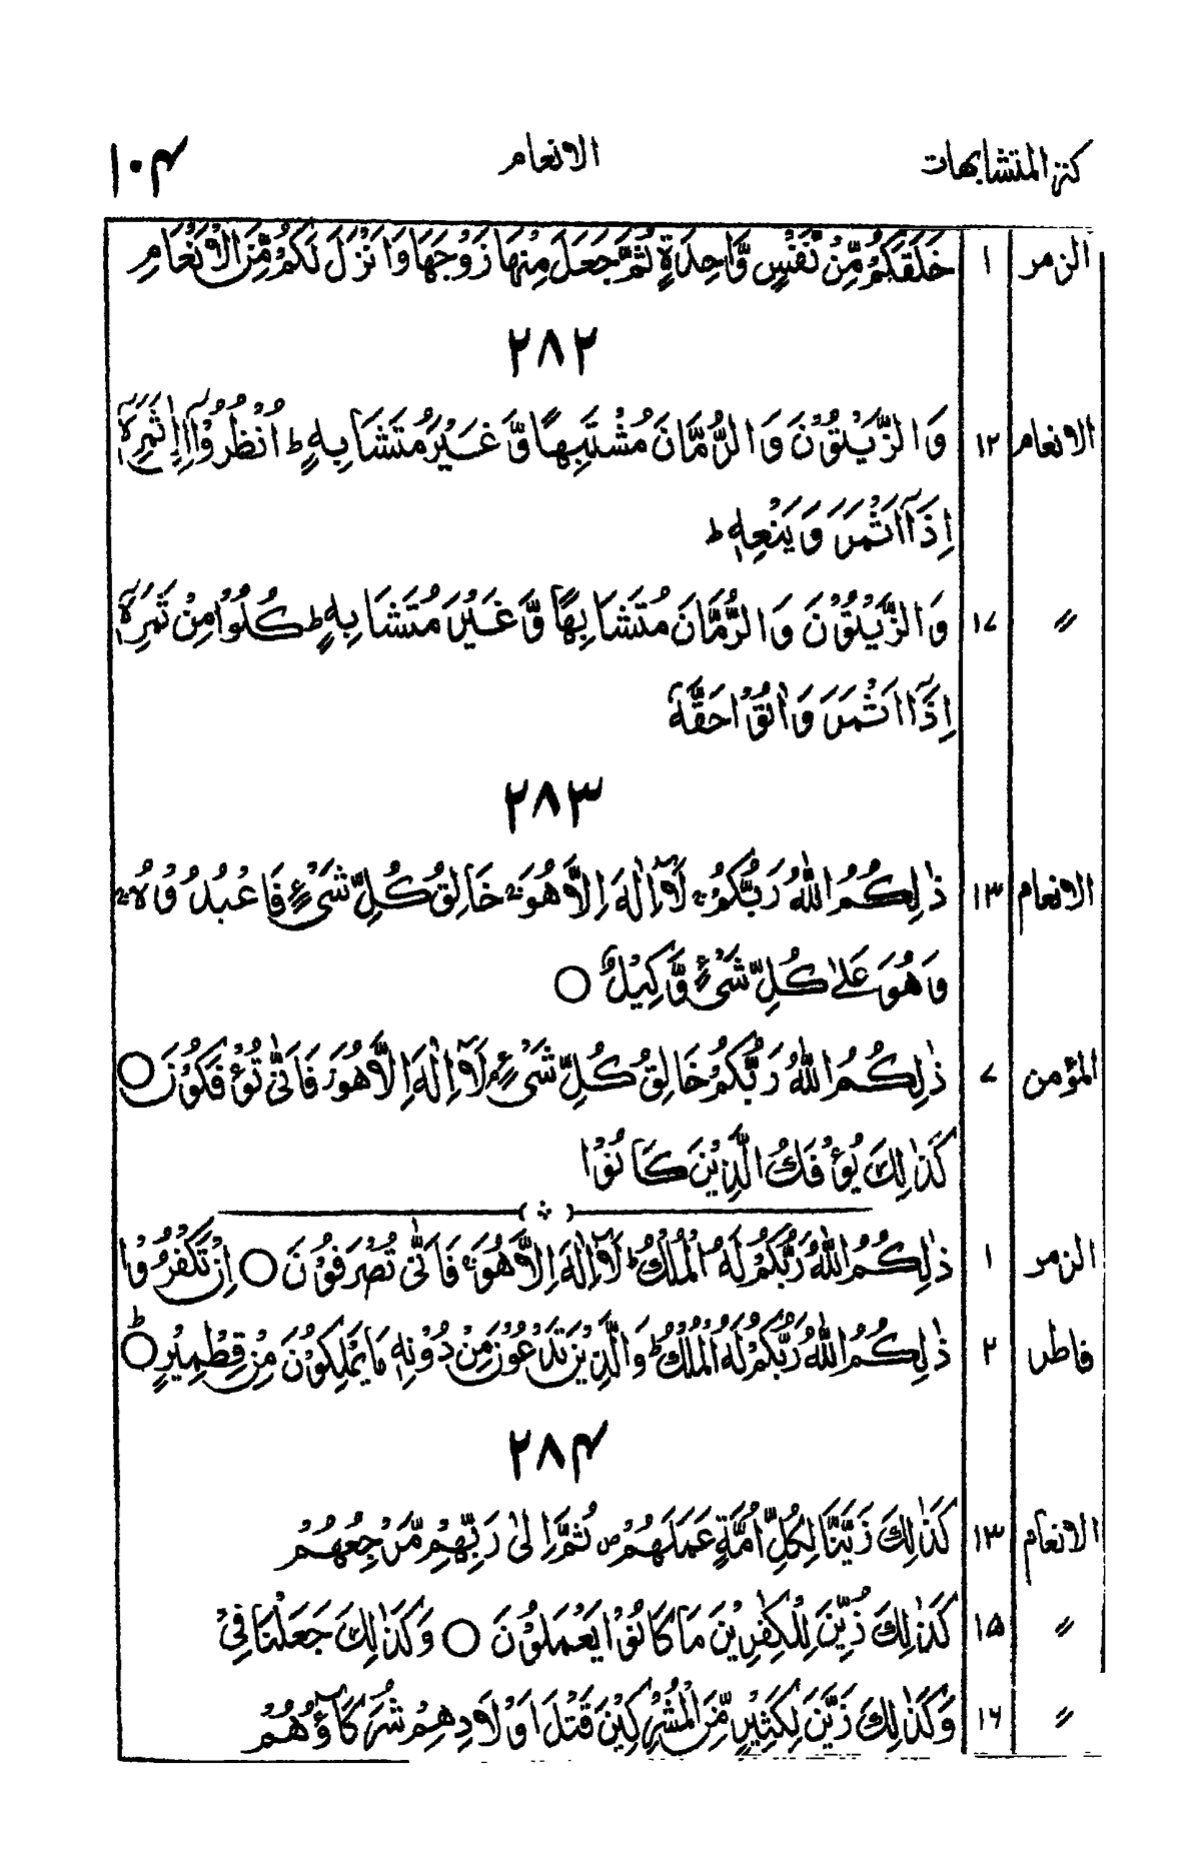 كنز المتشابهات الانعام ۱۰۴
الزمر ۱ خَلَقَكُمْ مِّنْ نَّفْسٍ وَّاحِدَةٍ ثُمَّ جَعَلَ مِنْهَا زَوْجَهَا وَاَنْزَلَ لَكُمْ مِّنَ الْاَنْعَامِ
۲۸۲
الانعام ۱۲ وَالزَّيْتُوْنَ وَالرُّمَّانَ مُشْتَبِهًا وَّغَيْرَ مُتَشَابِهٍ ط اُنْظُرُوْٓا اِلٰى ثَمَرِهٖٓ
اِذَآ اَثْمَرَ وَيَنْعِهٖ ط
〃 ۱۷ وَالزَّيْتُوْنَ وَالرُّمَّانَ مُتَشَابِهًا وَّغَيْرَ مُتَشَابِهٍ ط كُلُوْا مِنْ ثَمَرِهٖٓ
اِذَآ اَثْمَرَ وَاٰتُوْا حَقَّهٗ
۲۸۳
الانعام ۱۳ ذٰلِكُمُ اللّٰهُ رَبُّكُمْ ۚ لَآ اِلٰهَ اِلَّا هُوَ ۚ خَالِقُ كُلِّ شَيْءٍ فَاعْبُدُوْهُ ۚ
وَهُوَ عَلٰى كُلِّ شَيْءٍ وَّكِيْلٌ ○
المؤمن ۷ ذٰلِكُمُ اللّٰهُ رَبُّكُمْ خَالِقُ كُلِّ شَيْءٍ ۘ لَآ اِلٰهَ اِلَّا هُوَ ۚ فَاَنّٰى تُؤْفَكُوْنَ ○
كَذٰلِكَ يُؤْفَكُ الَّذِيْنَ كَانُوْا
الزمر ۱ ذٰلِكُمُ اللّٰهُ رَبُّكُمْ لَهُ الْمُلْكُ ط لَآ اِلٰهَ اِلَّا هُوَ ۚ فَاَنّٰى تُصْرَفُوْنَ ○ اِنْ تَكْفُرُوْا
فاطر ۲ ذٰلِكُمُ اللّٰهُ رَبُّكُمْ لَهُ الْمُلْكُ ط وَالَّذِيْنَ تَدْعُوْنَ مِنْ دُوْنِهٖ مَا يَمْلِكُوْنَ مِنْ قِطْمِيْرٍ ○ ط
۲۸۴
الانعام ۱۳ كَذٰلِكَ زَيَّنَّا لِكُلِّ اُمَّةٍ عَمَلَهُمْ ص ثُمَّ اِلٰى رَبِّهِمْ مَّرْجِعُهُمْ
〃 ۱۵ كَذٰلِكَ زُيِّنَ لِلْكٰفِرِيْنَ مَا كَانُوْا يَعْمَلُوْنَ ○ وَكَذٰلِكَ جَعَلْنَا فِيْ
〃 ۱۶ وَكَذٰلِكَ زَيَّنَ لِكَثِيْرٍ مِّنَ الْمُشْرِكِيْنَ قَتْلَ اَوْلَادِهِمْ شُرَكَآؤُهُمْ